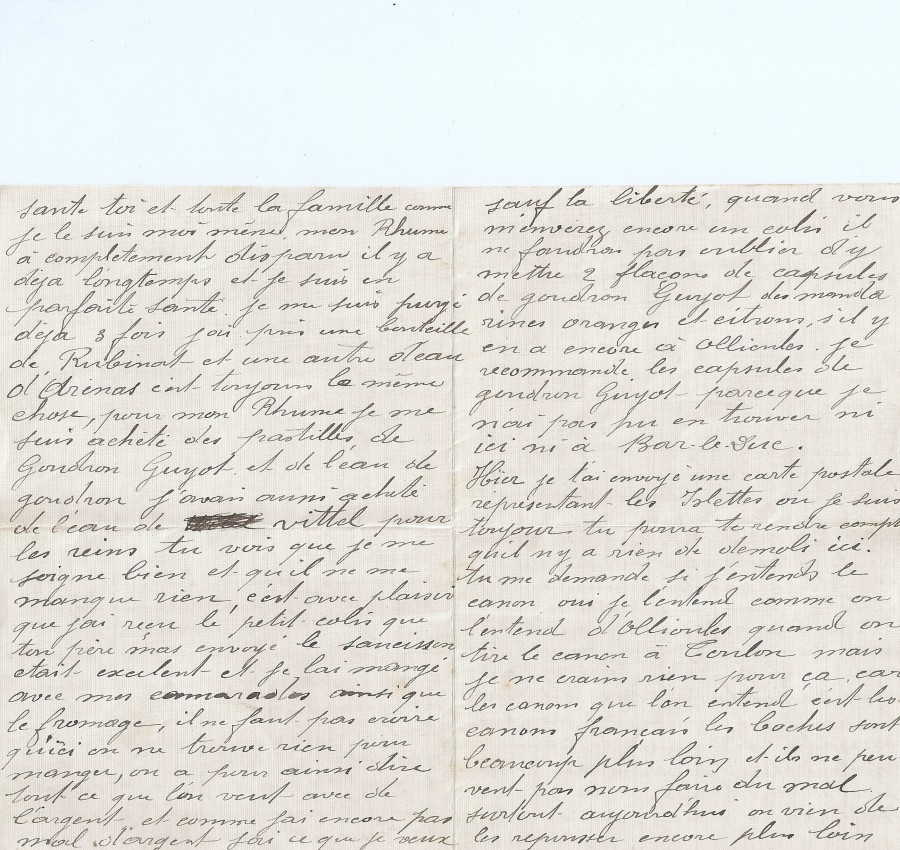 sante toi et toute la famille comme
je le suis moi même. mon Rhume
à complètement disparu il y a
deja longtemps et je suis en
parfaite santé. je me suis purgé
déja 3 fois jai pris une bouteille
de Rubinat et une autre d'eau
d'Arenas cest toujours la même
chose, pour mon Rhume je me
suis acheté des pastilles de
Goudron Guyot et de l'eau de
goudron j'avais aussi acheté
de l'eau de vittel pour
les reins tu vois que je me
soigne bien et qu'il ne me
manque rien, c'est avec plaisir
que j'ai reçu le petit colis que
ton père m'as envoyé le saucisson
etait excelent et je l'ai mangé
avec mes camarades ainsi que
le fromage, il ne faut pas croire
qu'ici on ne trouve rien pour
manger, on a pour ainsi dire
tout ce que l'on veut avec de
l'argent et comme j'ai encore pas
mal d'argent j'ai ce que je veux
sauf la liberté, quand vous
m'enverez encore un colis il
ne faudra pas oublier d'y
mettre 2 flacons de capsules
de goudron Guyot des manda
rines oranges et citrons, s'il y
en a encore à Ollioules. je
recommande les capsules de
goudron Guyot parceque je
n'ais pas pu en trouver ni
ici ni à Bar-le-Duc.
Hier je t'ai envoyé une carte postale
réprésentant les Islettes ou je suis
toujour tu poura te rendre compte
qu'il n'y a rien de demoli ici.
tu me demande si j'entends le
canon oui je l'entend comme on
l'entend d'Ollioules quand on
tire le canon à Toulon mais
je ne crains rien pour ça, car
les canons que l'on entend c'est les
canons français les boches sont
beaucoup plus loin et ils ne peu
vent pas nous faire du mal
surtout aujourd'hui on vien de
les repousser encore plus loin